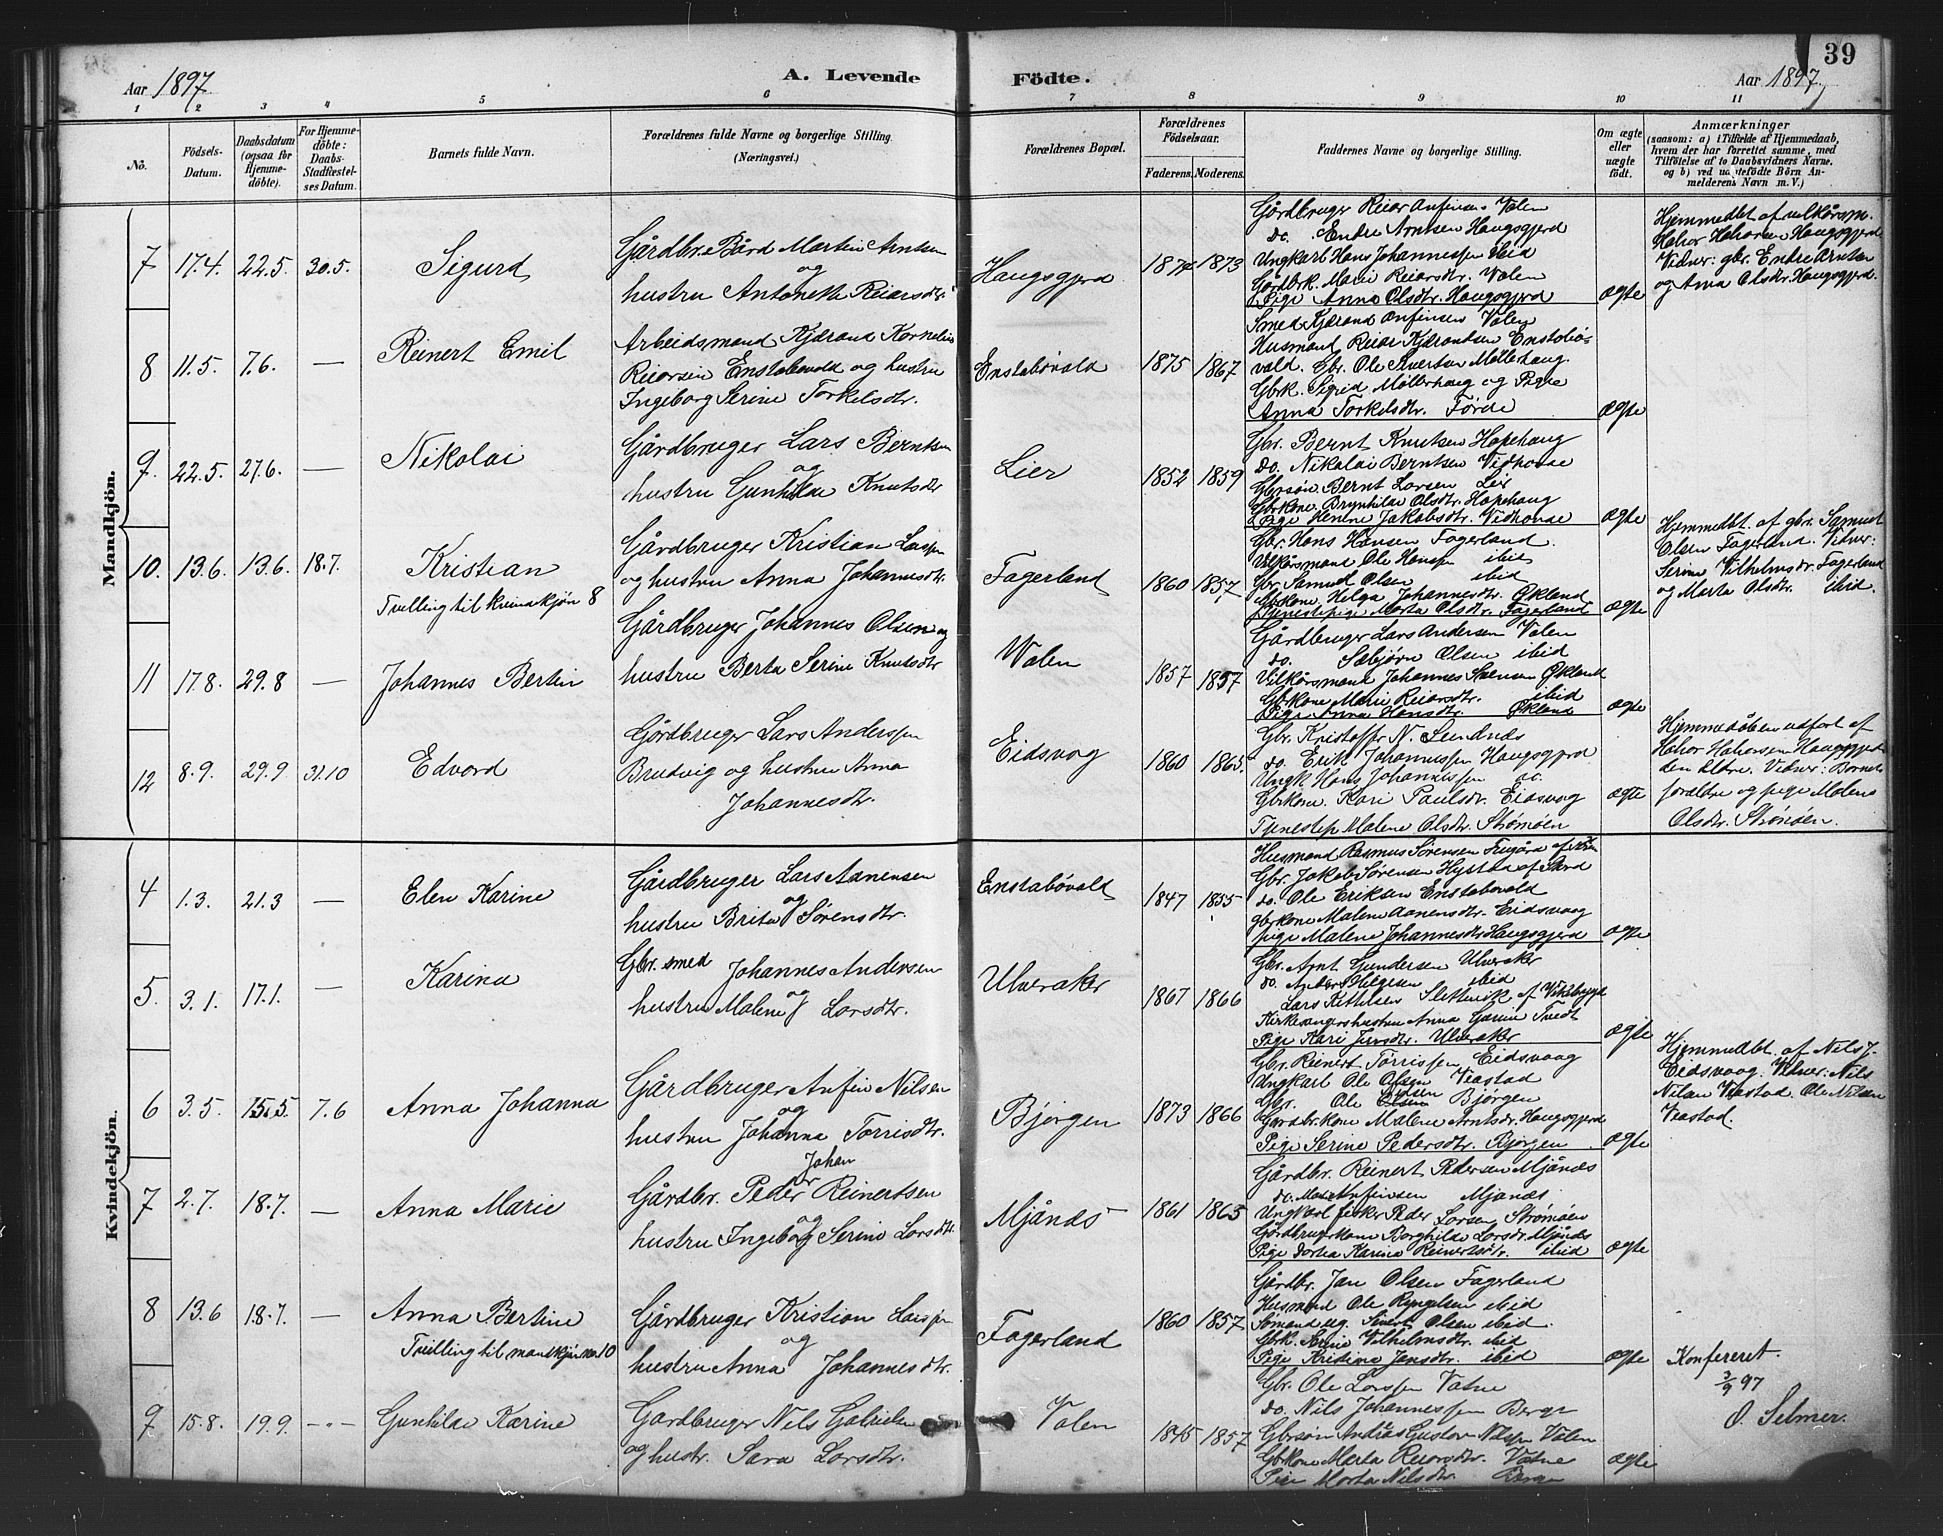 39
Aar 1897. A. Levende Födte. Aar 1897.
1 2 3 4 5 6 7 8 9 10 11
No.
Födsels-
Datum.
Daabsdatum
(ogsaa for
Hjemme-
döbte).
For Hjemme-
döbte:
Daabs-
Stadfæstel-
ses Datum.
Barnets fulde Navn.
Forældrenes fulde Navne og borgerlige Stilling.
(Næringsvei.)
Forældrenes Bopæl.
Forældrenes
Födselsaar.
Faderens. Moderens.
Faddernes Navne og borgerlige Stilling.
Om ægte
eller
uægte
födt.
Anmærkninger
(saasom: a) i Tilfælde af Hjemmedaab,
hvem der har forrettet samme, med
Tilföielse af to Daabsvidners Navne,
og b) ved uægtefödte Börn An-
melderens Navn m. V.)
Mandkjön.
7 17.4. 22.5. 30.5. Sigurd
Gårdbr. Bård Martin Arntsen
og
hustru Antonette Reiarsdtr.
Haugsgjerd
1874 1873
Gårdbruger Reiar Anfinsen Valen
do. Endre Arntsen Haugsgjerd
Ungkarl Hans Johannessen ibid
Gårdbrk. Mari Reiarsdtr. Valen
Pige Anna Olsdtr. Haugsgjerd
ægte
Hjemmedbt. af vilkårsm.
Halvor Halvorsen Haugsgjerd
Vidner: gbr. Endre Arntsen
og Anna Olsdtr. Haugsgjerd.
8 11.5. 7.6. — Reinert Emil
Arbeidsmand Kjærand Kornelius
Reiarsen Enstabøvold og hustru
Ingeborg Serine Torkelsdtr.
Enstabøvald
1875 1867
Smed Kjærand Anfinsen Valen
Husmand Reiar Kjærandsen Enstabø-
vald. Gbr. Ole Sivertsen Møllehaug.
Gbrk. Sigrid Møllerhaug og Pige
Anna Torkelsdtr. Førde
ægte
9. 22.5. 27.6. — Nikolai
Gårdbruger Lars Berntsen
og
hustru Gunhilde Knutsdtr
Lier
1852 1859
Gbr. Bernt Knutsen Hopehaug
do. Nikolai Berntsen Vidhovde
Gbrsøn Bernt Larsen Lier
Gbrkone Brynhilde Olsdtr. Hopehaug
Pige Henrine Jakobsdtr. Vidhovde
ægte
10. 13.6. 13.6. 18.7. Kristian
Tvilling til kvindekjøn 8
Gårdbruger Kristian Larssen
og hustru Anna Johannesdtr.
Fagerland
1860 1857
Gbr. Hans Hansen Fagerland.
Vilkårsmand Ole Hanssen ibid
Gbr. Samuel Olsen ibid
Gbrkone Helga Johannesdtr. Økland
Tjenestepige Marta Olsdtr. Fagerland
ægte
Hjemmedbt. af gbr. Samuel
Olsen Fagerland. Vidner:
Serine Vilhelmsdr. Fagerland
og Marta Olsdtr. ibid.
11 17.8. 29.8 — Johannes Bertin
Gårdbruger Johannes Olsen og
hustru Berta Serine Knutsdtr
Valen
1857 1857
Gårdbruger Lars Andersen Valen
do. Sæbjørn Olsen ibid
Vilkårsmand Johannes Økland
Gbrkone Mari Reiarsdtr. ibid
Pige Anna Hansdtr. Økland
ægte
12 8.9. 29.9 31.10 Edvard
Gårdbruger Lars Anderssen
Brudvig og hustru Anna
Johannesdtr.
Eidsvag
1860 1865.
Gbr. Kristoffer N. Sundnæs
do. Erik Johannessen Haugsgjerd
Ungk Hans Johannessen do.
Gbrkone. Kari Paulsdtr. Eidsvag
Tjenestep Malene Olsdtr. Strømøen
ægte
Hjemmedåben udført af
Halvor Halvorsen Haugsgjerd
den ældre. Vidner: Barnets
forældre og pige Malene
Olsdtr. Strømøen.
Kvindekjön.
4 1.3. 21.3 — Elen Karine
Gårdbruger Lars Aanensen
og
hustru Brita Sørensdtr.
Enstabøvald
1847 1855
Husmand Rasmus Sørensen
Gbr. Jakob Sørensen Hystad af Stord
do. Ole Eriksen Enstabøvald
gbrkone Malene Aanensdtr. Eidsvaag
pige Malene Johannesdtr Haugsgjerd
ægte
5. 3.1. 17.1. — Karina
Gbr. smed Johannes Andersen
og
hustru Malene Larsdtr.
Ulveraker
1867 1866
Gbr. Arnt Gundersen Ulveraker
do. Anders Helgesen ibid
Lars Kittelsen Slettevik af Vikebygd
Kirkesangershustru Anna Tvedt
Pige Kari Ulveraker
ægte
6 3.5. 15.5. 7.6 Anna Johanna
Gårdbruger Anfin Nilsen
og
hustru Johanna Torrisdtr.
Bjørgen
1873 1866
Gbr. Reinert Tørrissen Eidsvaag
Ungkarl Ole Olsen Veastad
Gbr. Ole Olsen Bjørgen
Gaardbr.kone Malene Arntsdr. Haugsgjerd
Pige Serine Pedersdtr. Bjørgen
ægte
Hjemmedbt. af Nils J.
Eidsvaag. Vidner: Nils
Nilsen Veastad. Ole Nilsen
Veastad.
7 2.7. 18.7. — Anna Marie
Johan
Gårdbr. Peder Reinertsen
og
hustru Ingeborg Serine Larsdtr.
Mjånæs
1861 1865
Gårdbr. Reinert Pedersen Mjånæs
do. Anfinsen Mjånæs
Ungkarl fisker Peder Larsen Strømøen
Gårdbrugerkone Borghilde Larsdr. Mjånæs
Pige Dortea Karina Reinertsdtr. ibid
ægte
8 13.6 18.7. — Anna Bertine
Tvilling til mandkjøn no. 10
Gårdbruger Kristian Larssen
og
hustru Anna Johannesdtr.
Fagerland
1860 1857
Gårdbr. Jan Olsen Fagerland
Husmand Ole ibid
Sømand ug. Sivert Olsen ibid.
Gbrk. Serine Vilhelmsdtr. ibid
Pige Kristine Jansdtr. ibid
ægte
Konfereret.
3/9 97
O. Selmer.
9 15.8. 19.9. -"- Gunhilde Karine
Gårdbruger Nils Gabrielsen
og hustr. Sara Larsdtr.
Valen
1845 1857
Gbr. Ole Larssen Vatne
do. Nils Johannessen Berge
Gbrsøn Andreas Gustav Nilsen Valen
Gbrkone Marta Reiarsdtr. Vatne
Pige Marta Nilsdtr. Berge
ægte